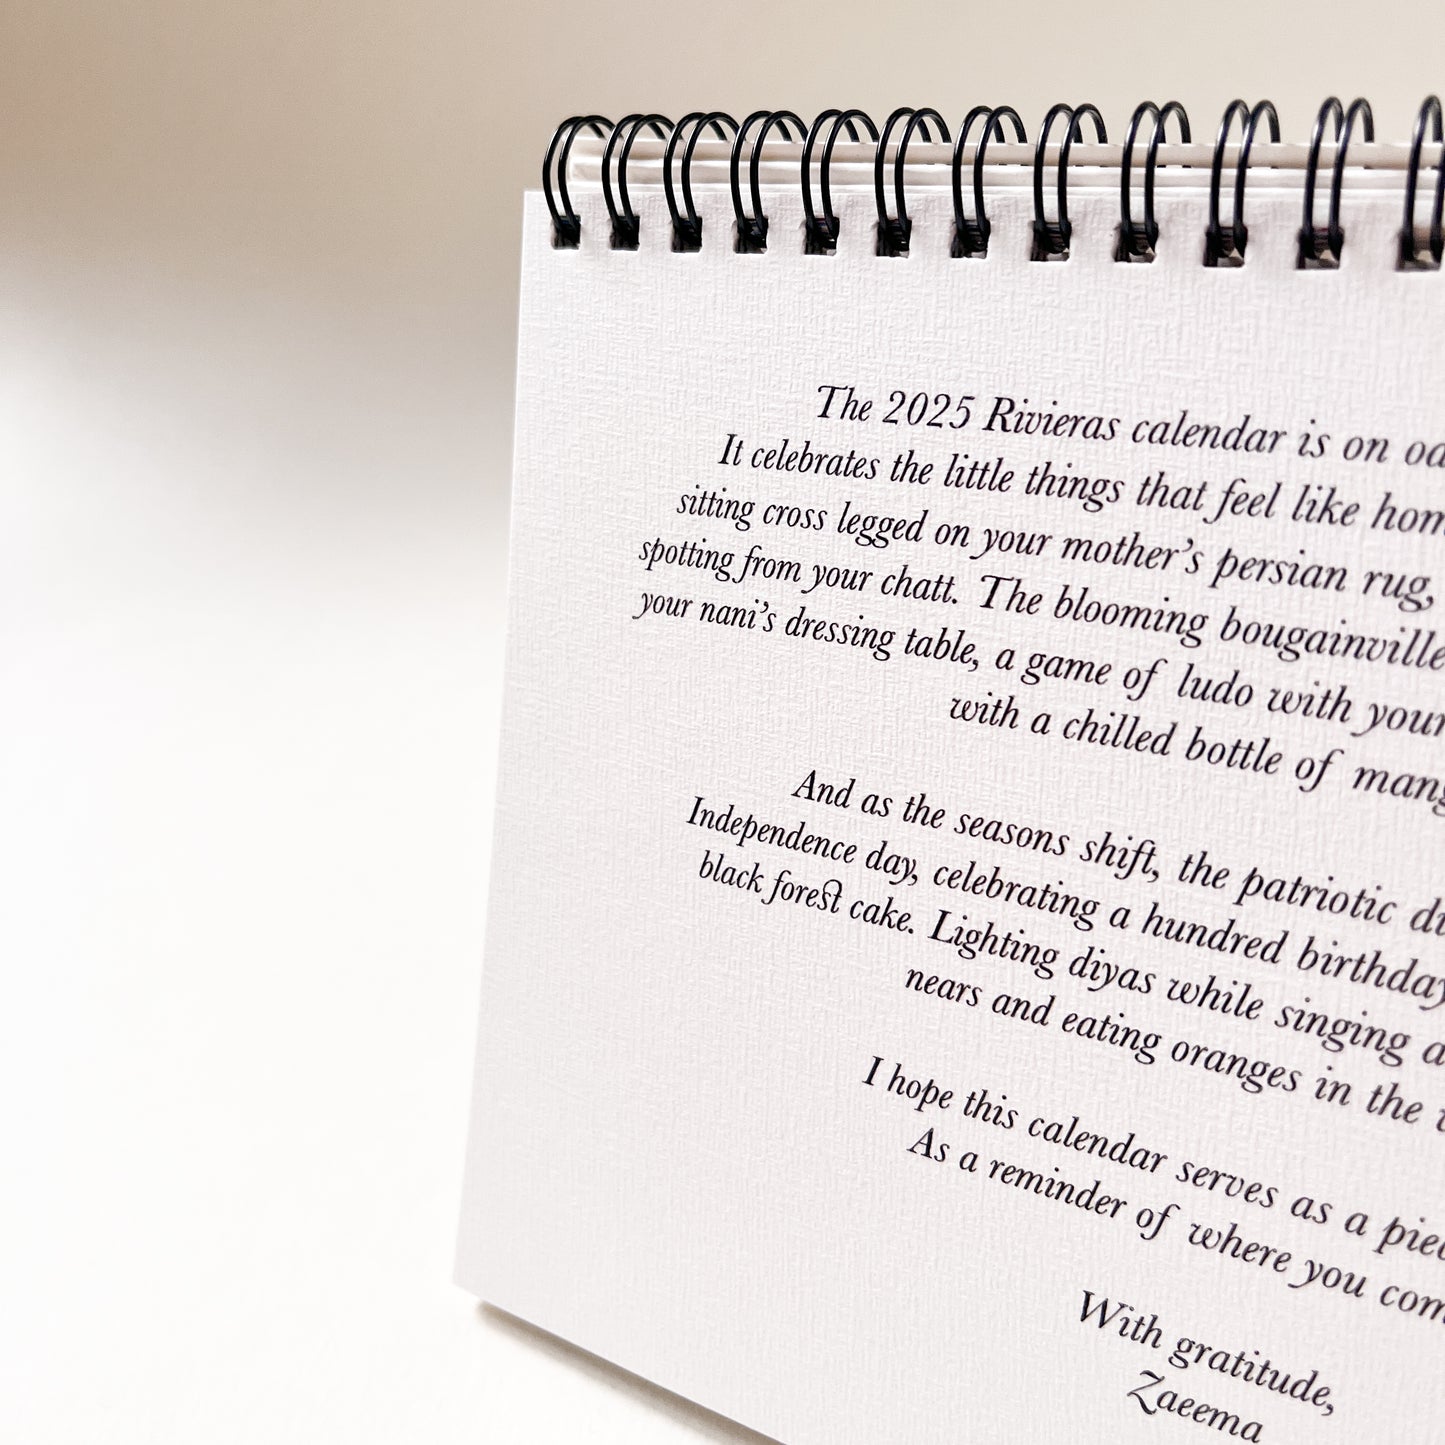 The 2025 Rivieras calendar is on
It celebrates the little things that feel like
sitting cross legged on your mother's persian rug,
spotting from your chatt. The blooming
your nani's dressing table, a game of ludo with
with a chilled bottle of
And as the seasons shift, the patriotic
Independence day, celebrating a hundred
black forest cake. Lighting diyas while singing
nears and eating oranges in the
I hope this calendar serves as a
As a reminder of where you
With gratitude,
Zaeema